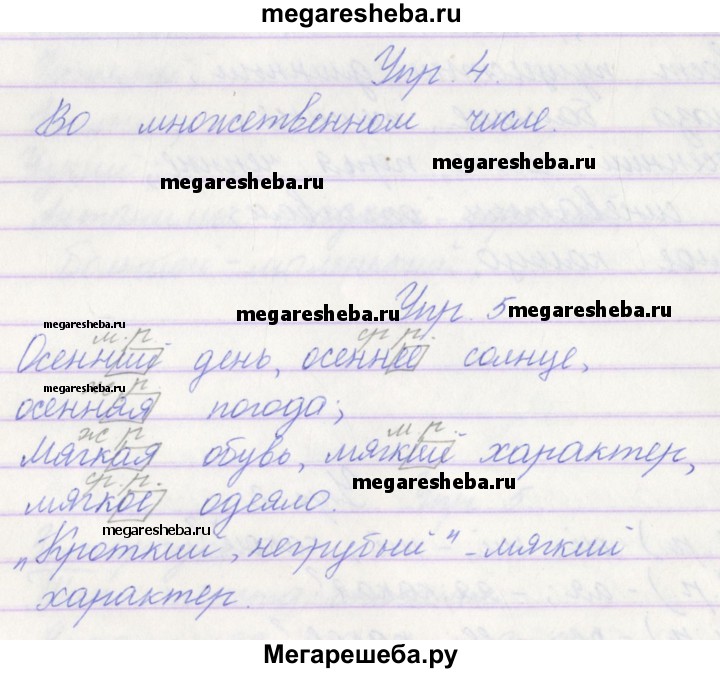 megaresheba.ru
Упр. 4.
Во множественном числе.
megaresheba.ru
megaresheba.ru
Упр. 5
megaresheba.ru
megaresheba.ru
megaresheba.ru
м. р. ср. р.
Осенний день, осеннее солнце,
megaresheba.ru
ж. р.
осенная погода;
ж р. м. р.
Мягкая обувь, мягкий характер,
ср. р. megaresheba.ru
мягкое одеяло.
megaresheba.ru
„Кроткий, негрубый" – мягкий
характер.
Мегарешеба.ру